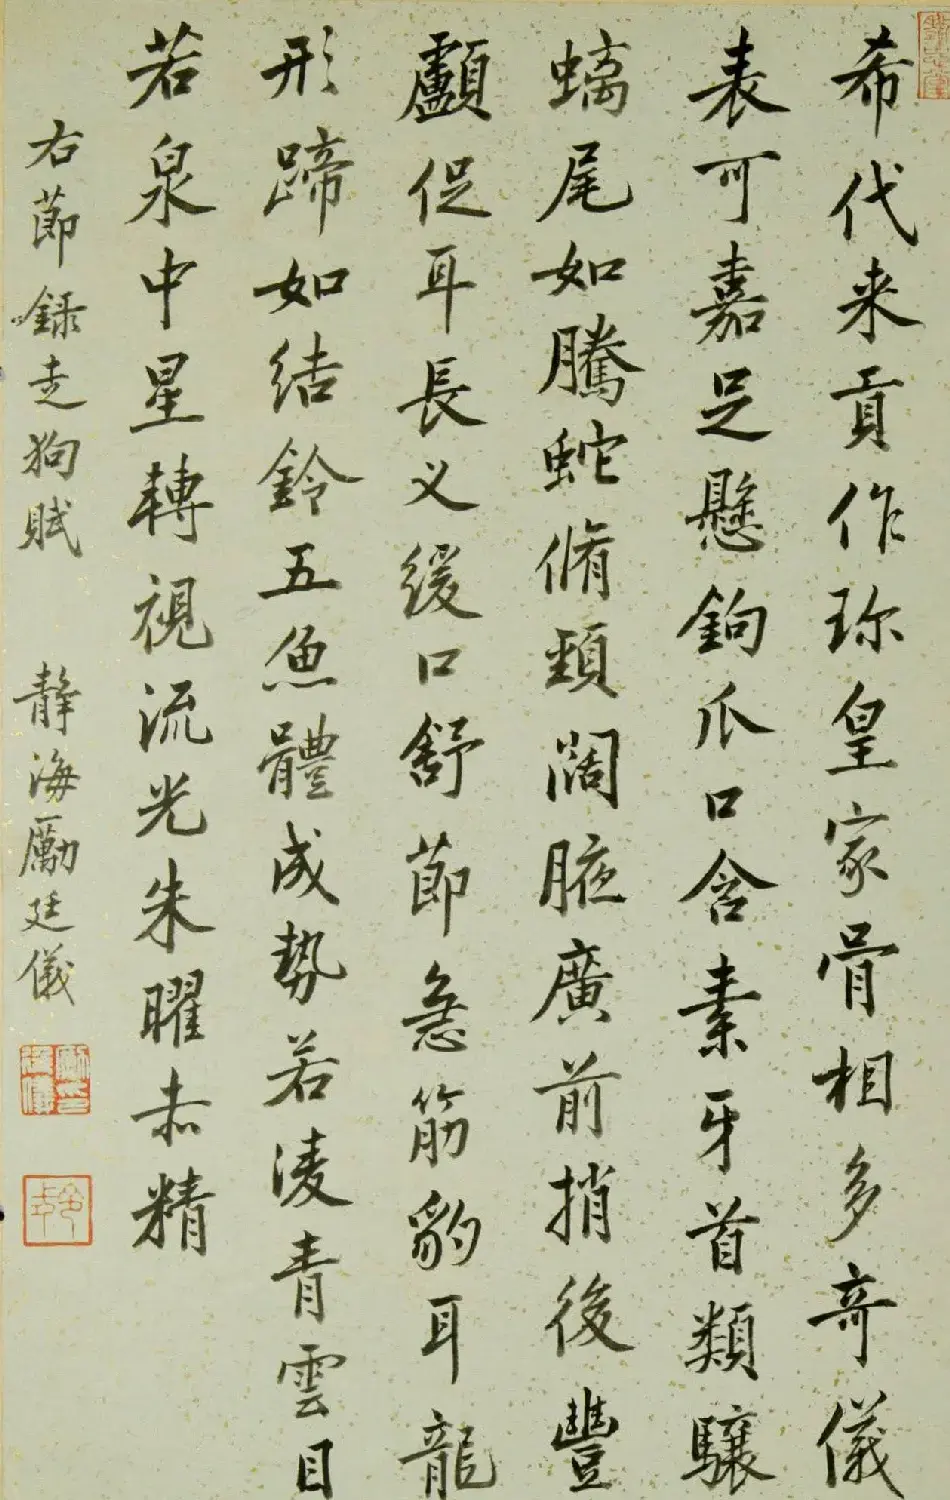 希代来貢作珎皇家骨相多奇儀
表可嘉足懸鉤爪口含素牙首類驤
螭尾如騰蛇脩頸闊腋廣前捎後豐
顱促耳長义緩口舒節急筋豹耳龍
形蹄如結鈴五魚體成勢若凌青雲目
若泉中星轉視流光朱曜赤精
右節録走狗賦 静海勵廷儀